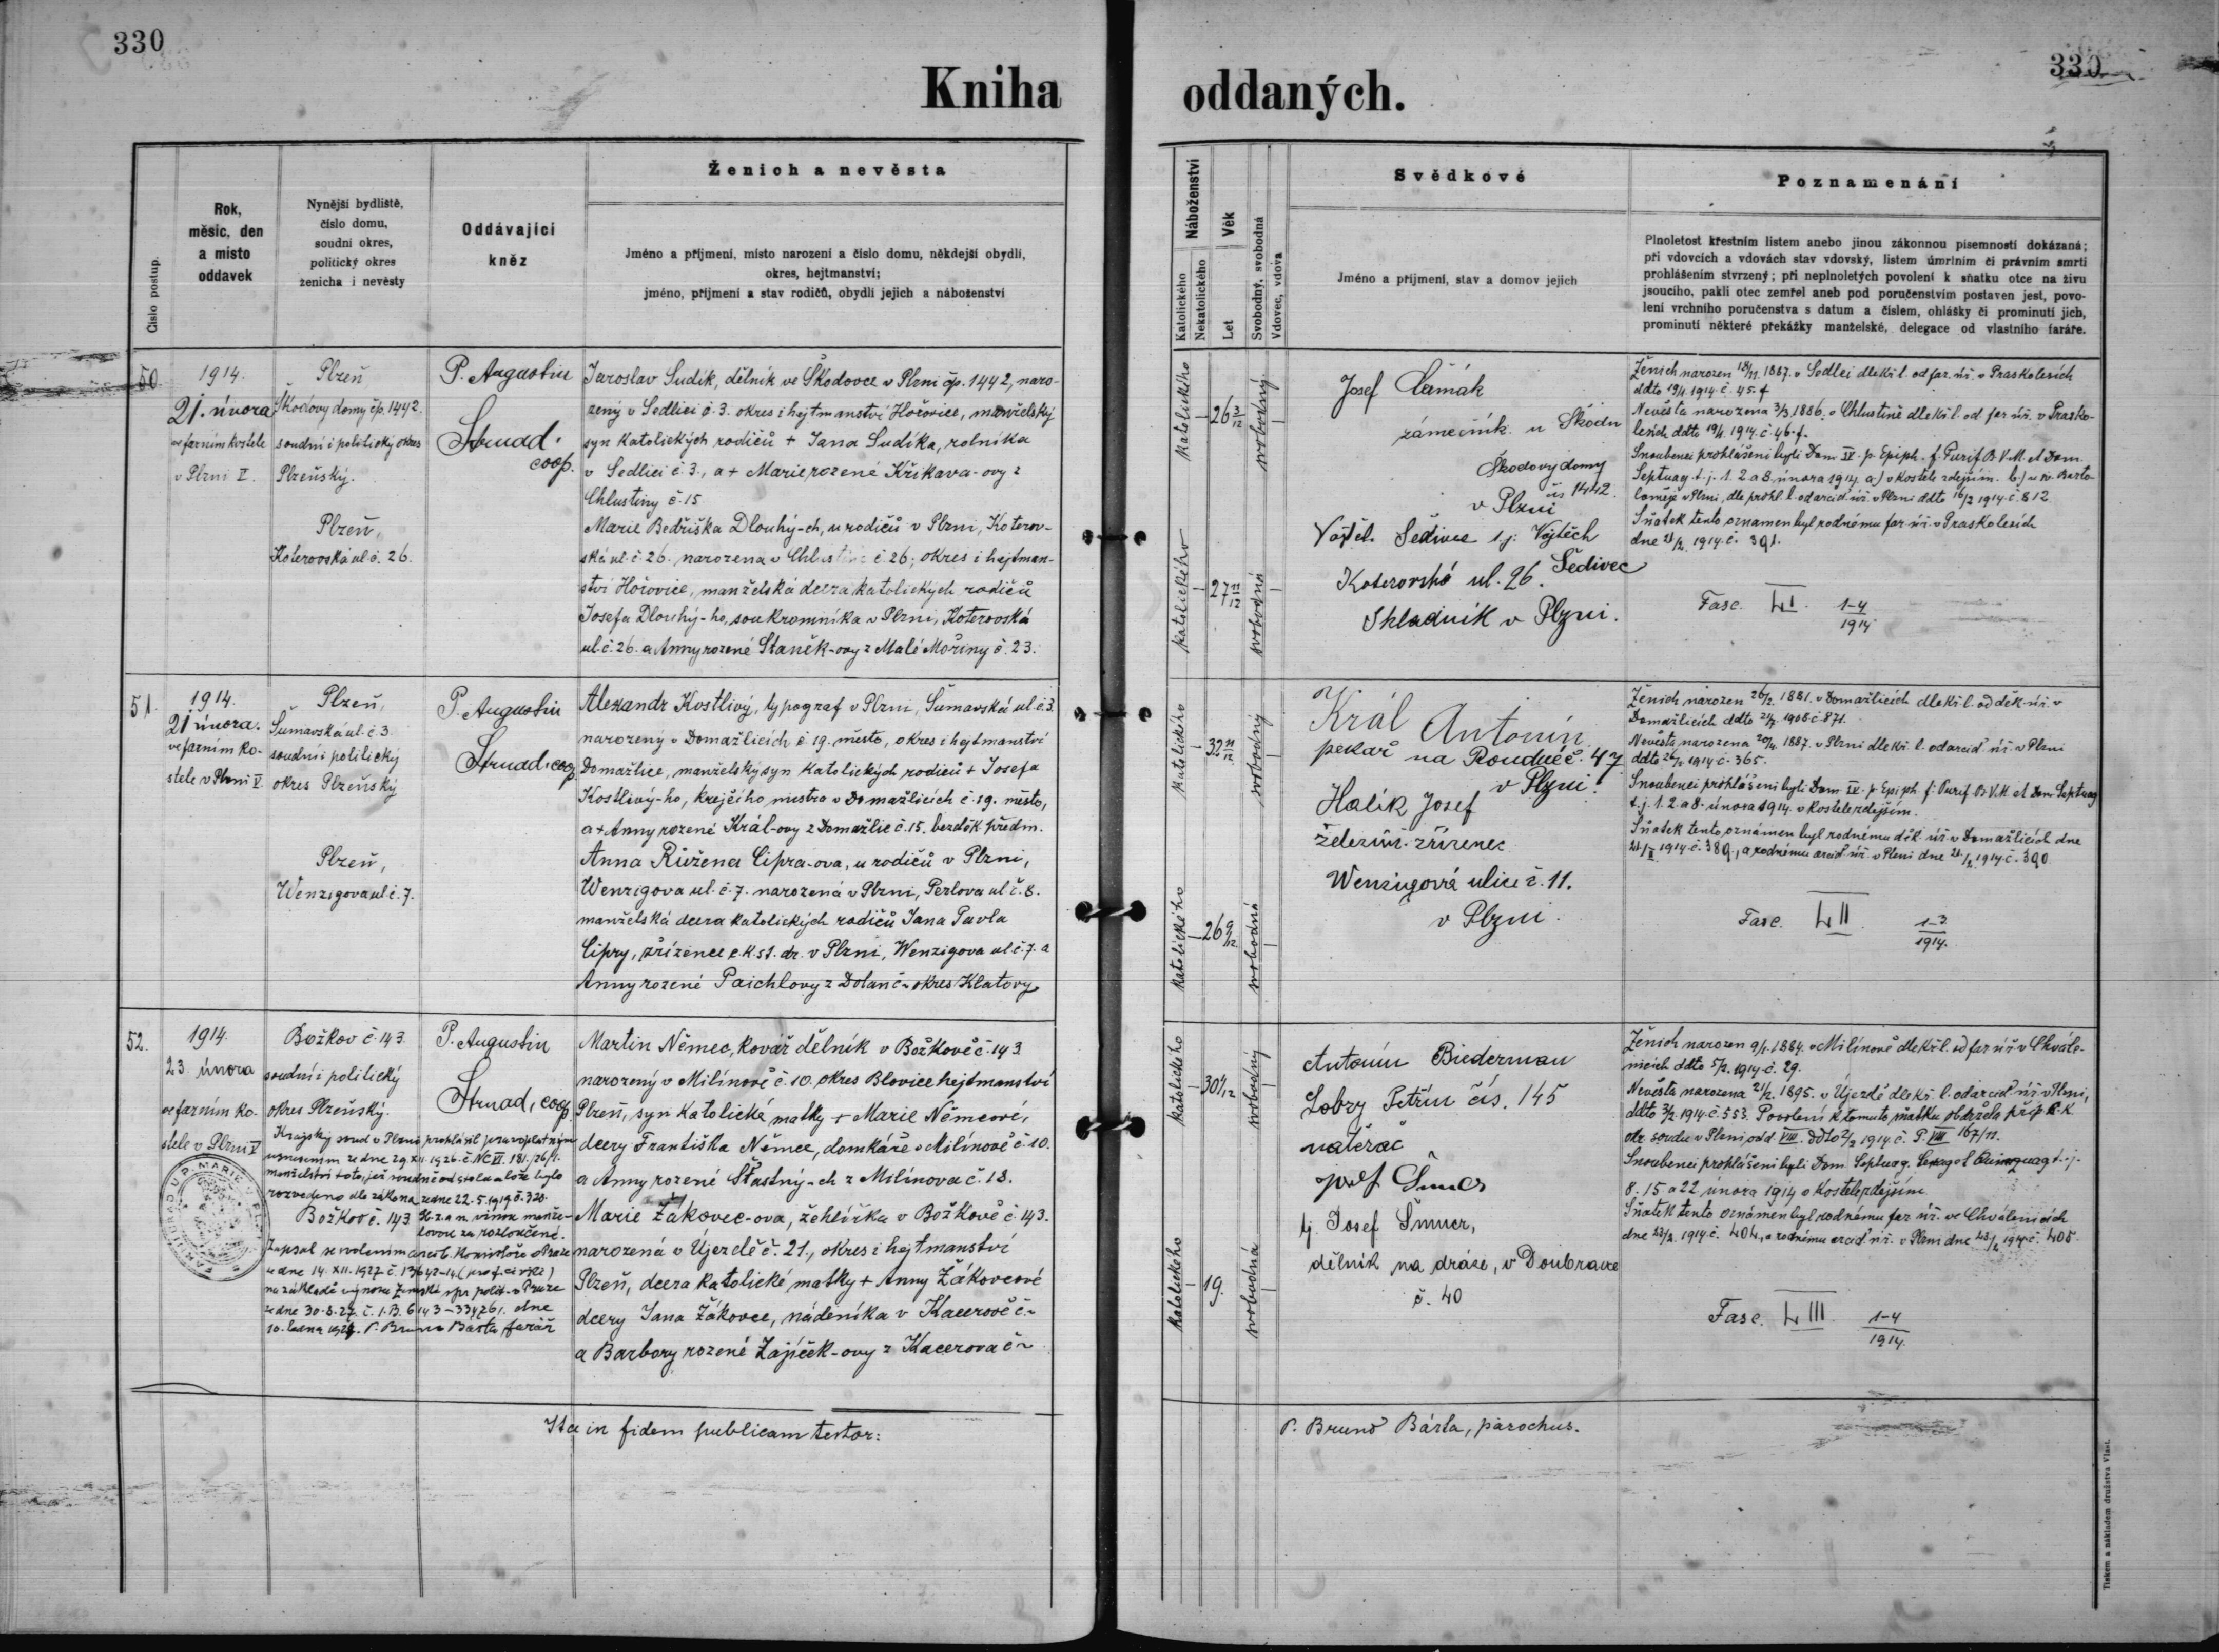 330
330
Kniha oddaných.
Číslo postup.
Rok,
měsíc, den
a místo
oddavek
Nynější bydliště,
číslo domu,
soudní okres,
politický okres
ženicha i nevěsty
Oddávající
kněz
Ženich a nevěsta
Jméno a příjmení, místo narození a číslo domu, někdejší obydlí,
okres, hejtmanství;
jméno, příjmení a stav rodičů, obydlí jejich a náboženství
Náboženství
Katolického
Nekatolického
Věk
Let
Svobodný, svobodná
Vdovec, vdova
Svědkové
Jméno a příjmení, stav a domov jejich
Poznamenání
Plnoletost křestním listem anebo jinou zákonnou písemností dokázaná;
při vdovcích a vdovách stav vdovský, listem úmrtním či právním smrti
prohlášením stvrzený; při neplnoletých povolení k sňatku otce na živu
jsoucího, pakli otec zemřel aneb pod poručenstvím postaven jest, povo-
lení vrchního poručenstva s datum a číslem, ohlášky či prominutí jich,
prominutí některé překážky manželské, delegace od vlastního faráře.
50.
1914.
21. února
ve farním kostele
v Plzni V.
Plzeň
Škodovy domy čp. 1442.
soudní i politický okres
Plzeňský.
Plzeň,
Koterovská ul. č. 26.
P. Augustin
Strnad.
coop.
Jaroslav Sudík, dělník ve Škodovce v Plzni čp. 1442, naro-
zený v Sedlici č. 3. okres i hejtmanství Hořovice, manželský
syn katolických rodičů + Jana Sudíka, rolníka
v Sedlici č. 3., a + Marie rozené Křikava-ovy z
Chlustiny č. 15
Marie Bedřiška Dlouhý-ch, u rodičů v Plzni, Koterov-
ská ul. č. 26. narozena v Chlustině č. 26; okres i hejtman-
ství Hořovice, manželská dcera katolických rodičů
Josefa Dlouhý-ho, soukromníka v Plzni, Koterovská
ul. č. 26. a Anny rozené Staněk-ovy z Malé Mořiny č. 23.
katolického
26 3/12
svobodný
katolického
27 11/12
svobodná
Josef
zámečník u Škodů
Škodovy domy
čís 1442.
v Plzni
Vojtěch Šedivec tj. Vojtěch
Šedivec
Koterovská ul. 26.
Skladník v Plzni.
Ženich narozen 18/11. 1887. v Sedlci dle kř. l. od far. úř. v Praskolesích
ddto 19/1. 1914. č. 45. f
Nevěsta narozena 3/3. 1886. v Chlustině dle kř. l. od far. úř. v Prasko-
lesích ddto 19/1. 1914. č. 46. f.
Snoubenci prohlášeni byli Dom. IV. p. Epiph. f. Purif. B. V. M. et Dom.
Septuag. t. j. 1. 2 a 8. února 1914 a) v kostele zdejším. b) u sv. Barto-
loměje v Plzni, dle prohl. l. od arcid. úř. v Plzni ddto 16/2 1914. č. 812
Sňatek tento oznámen byl rodnému far. úř. v Praskolesích
dne 21/2. 1914. č. 391.
Fasc. LI. 1-4
1914
51.
1914.
21 února.
ve farním ko-
stele v Plzni V.
Plzeň,
Šumavská ul. č. 3
soudní i politický
okres Plzeňský
Plzeň,
Wenzigova ul. č. 7.
P. Augustin
Strnad, coop.
Alexandr Kostlivý, typograf v Plzni, Šumavská ul. č. 3.
narozený v Domažlicích č. 19. město, okres i hejtmanství
Domažlice, manželský syn katolických rodičů + Josefa
Kostlivý-ho, krejčího mistra v Domažlicích č. 19. město,
a + Anny rozené Král-ovy z Domažlic č. 15. bezděk. předm.
Anna Růžena Cipra-ova, u rodičů v Plzni,
Wenzigova ul. č. 7. narozená v Plzni, Perlova ul. č. 8.
manželská dcera katolických rodičů Jana Pavla
Cipry, zřízence c. k. st. dr. v Plzni, Wenzigova ul. č. 7. a
Anny rozené Paichlovy z Dolan č~ okres Klatovy.
katolického
32 11/12
svobodný
katolického
26 9/12
svobodná
Král Antonín
pekař na Roudné č. 47
v Plzni.
Halík Josef
železnič. zřízenec
Wenzigova ulice č. 11.
v Plzni.
Ženich narozen 26/2. 1881. v Domažlicích dle kř. l. od děk. úř. v
Domažlicích ddto 21/7. 1908 č. 871.
Nevěsta narozena 20/4. 1887. v Plzni dle kř. l. od arcid. úř. v Plzni
ddto 26/1. 1914 č. 365.
Snoubenci prohlášeni byli Dom. IV. p. Epiph. f. Purif. B. V. M. et Dom. Septuag
t. j. 1. 2 a 8. února 1914. v kostele zdejším.
Sňatek tento oznámen byl rodnému děk. úř. v Domažlicích dne
21/2. 1914. č. 389., a rodnému arcid. úř. v Plzni dne 21/2. 1914. č. 390.
Fasc. LII. 1-3
1914.
52.
1914.
23. února
ve farním ko-
stele v Plzni V
Božkov č. 143
soudní i politický
okres Plzeňský.
P. Augustin
Strnad, coop.
Krajský soud v Plzni prohlásil pravoplatným
usnesením ze dne 29. XII. 1926. č. Nc VI. 181./26/1.
manželství toto, jež soudně od stolu a lože bylo
rozvedeno dle zákona ze dne 22. 5. 1919 č. 320.
Sb. z. a n. vinou manže-
lovou za rozloučené.
Božkov č. 143
Zapsal se svolením arcib. Konsistoře v Praze
ze dne 14. XII. 1927 č. 13642-14.
na základě výnosu Zemské spr. polit. v Praze
ze dne 30. 8. 27. č. 1. B. 6143-33426/. dne
P. Bruno Bárta, farář
Martin Němec, kovář dělník v Božkově č. 143
narozený v Milínově č. 10. okres Blovice hejtmanství
Plzeň, syn katolické matky + Marie Němcové,
dcery Františka Němce, domkáře v Milínově č. 10.
a Anny rozené Šťastný-ch z Milínova č. 18.
Marie Žákovec-ova, žehlířka v Božkově č. 143.
narozená v Újezdě č. 21., okres i hejtmanství
Plzeň, dcera katolické matky + Anny Žákovcové
dcery Jana Žákovce, nádeníka v Kacerově č~
a Barbory rozené Zajíček-ovy z Kacerova č~
katolického
30 1/12
svobodný
katolického
19.
svobodná
Antonín Biederman
Lobzy Petřín čís. 145
natěrač
Josef Šmucr
tj. Josef Šmucr,
dělník na dráze, v Doubravce
č. 40
Ženich narozen 9/1. 1884. v Milínově dle kř. l. od far. úř. v Chvále-
nicích ddto 5/2. 1914. č. 29.
Nevěsta narozena 21/2. 1895. v Újezdě dle kř. l. od arcid. úř. v Plzni,
ddto 3/2. 1914. č. 553. Povolení k tomuto sňatku obdržela příp. c. k.
okr. soudu v Plzni, odd. VIII. ddto 2/2 1914. č. P. VIII 167/11.
Snoubenci prohlášeni byli Dom. Septuag. Sexag et Quinquag t. j.
8. 15 a 22. února 1914 v kostele zdejším
Sňatek tento oznámen byl rodnému far. úř. ve Chválenicích
dne 23/2. 1914. č. 404., a rodnému arcid. úř. v Plzni dne 23/2. 1914. č. 405.
Fasc. LIII. 1-4
1914.
Ita in fidem publicam testor:
P. Bruno Bárta, parochus.
Tiskem a nákladem družstva Vlast.